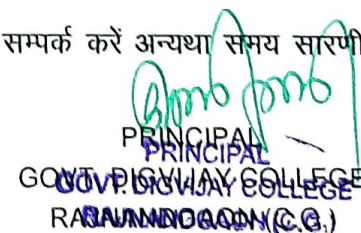 सम्पर्क करें अन्यथा समय सारणी
PRINCIPAL
PRINCIPAL
GOVT. DIGVIJAY COLLEGE
GOVT. DIGVIJAY COLLEGE
RAJNANDGAON (C.G.)